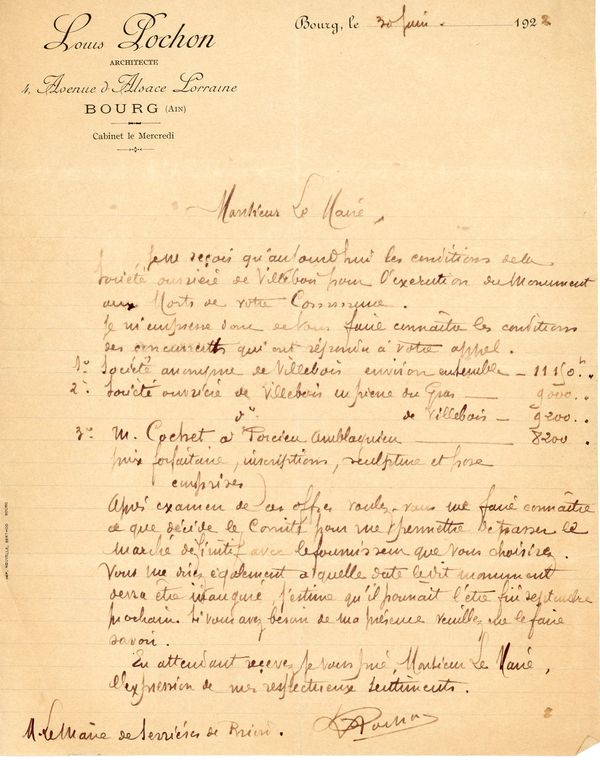 Louis Pochon
ARCHITECTE
4, Avenue d'Alsace Lorraine
BOURG (AIN)
Cabinet le Mercredi
Bourg, le 30 Juin. 1922
Monsieur Le Maire,
Je ne reçois qu'aujourd'hui les conditions de la
Société ouvrière de Villebois pour l'exécution du Monument
aux Morts de votre Commune.
Je m'empresse donc de vous faire connaître les conditions
des concurrents qui ont répondu à votre appel.
1º Société anonyme de Villebois environ ensemble - 11150.
2º Société ouvrière de Villebois en pierre du Gras — 9000..
dº de Villebois - 9200..
3º M. Cochet à Porcieu Amblagnieu — 8200
prix forfaitaire, inscriptions, sculpture et pose
comprises)
Après examen de ces offres voulez-vous me faire connaître
ce que décide le Comité pour me permettre de passer le
marché définitif avec le fournisseur que vous choisirez.
Vous me direz également à quelle date le dit monument
devra être inauguré, j'estime qu'il pourrait l'être fin septembre
prochain. Si vous avez besoin de ma présence veuillez me le faire
savoir.
En attendant recevez je vous prie Monsieur Le Maire,
l'expression de mes respectueux sentiments.
LPochon
M. Le Maire de Serrières de Briord.
IMP. NOUVELLE, BERTHOD BOURG